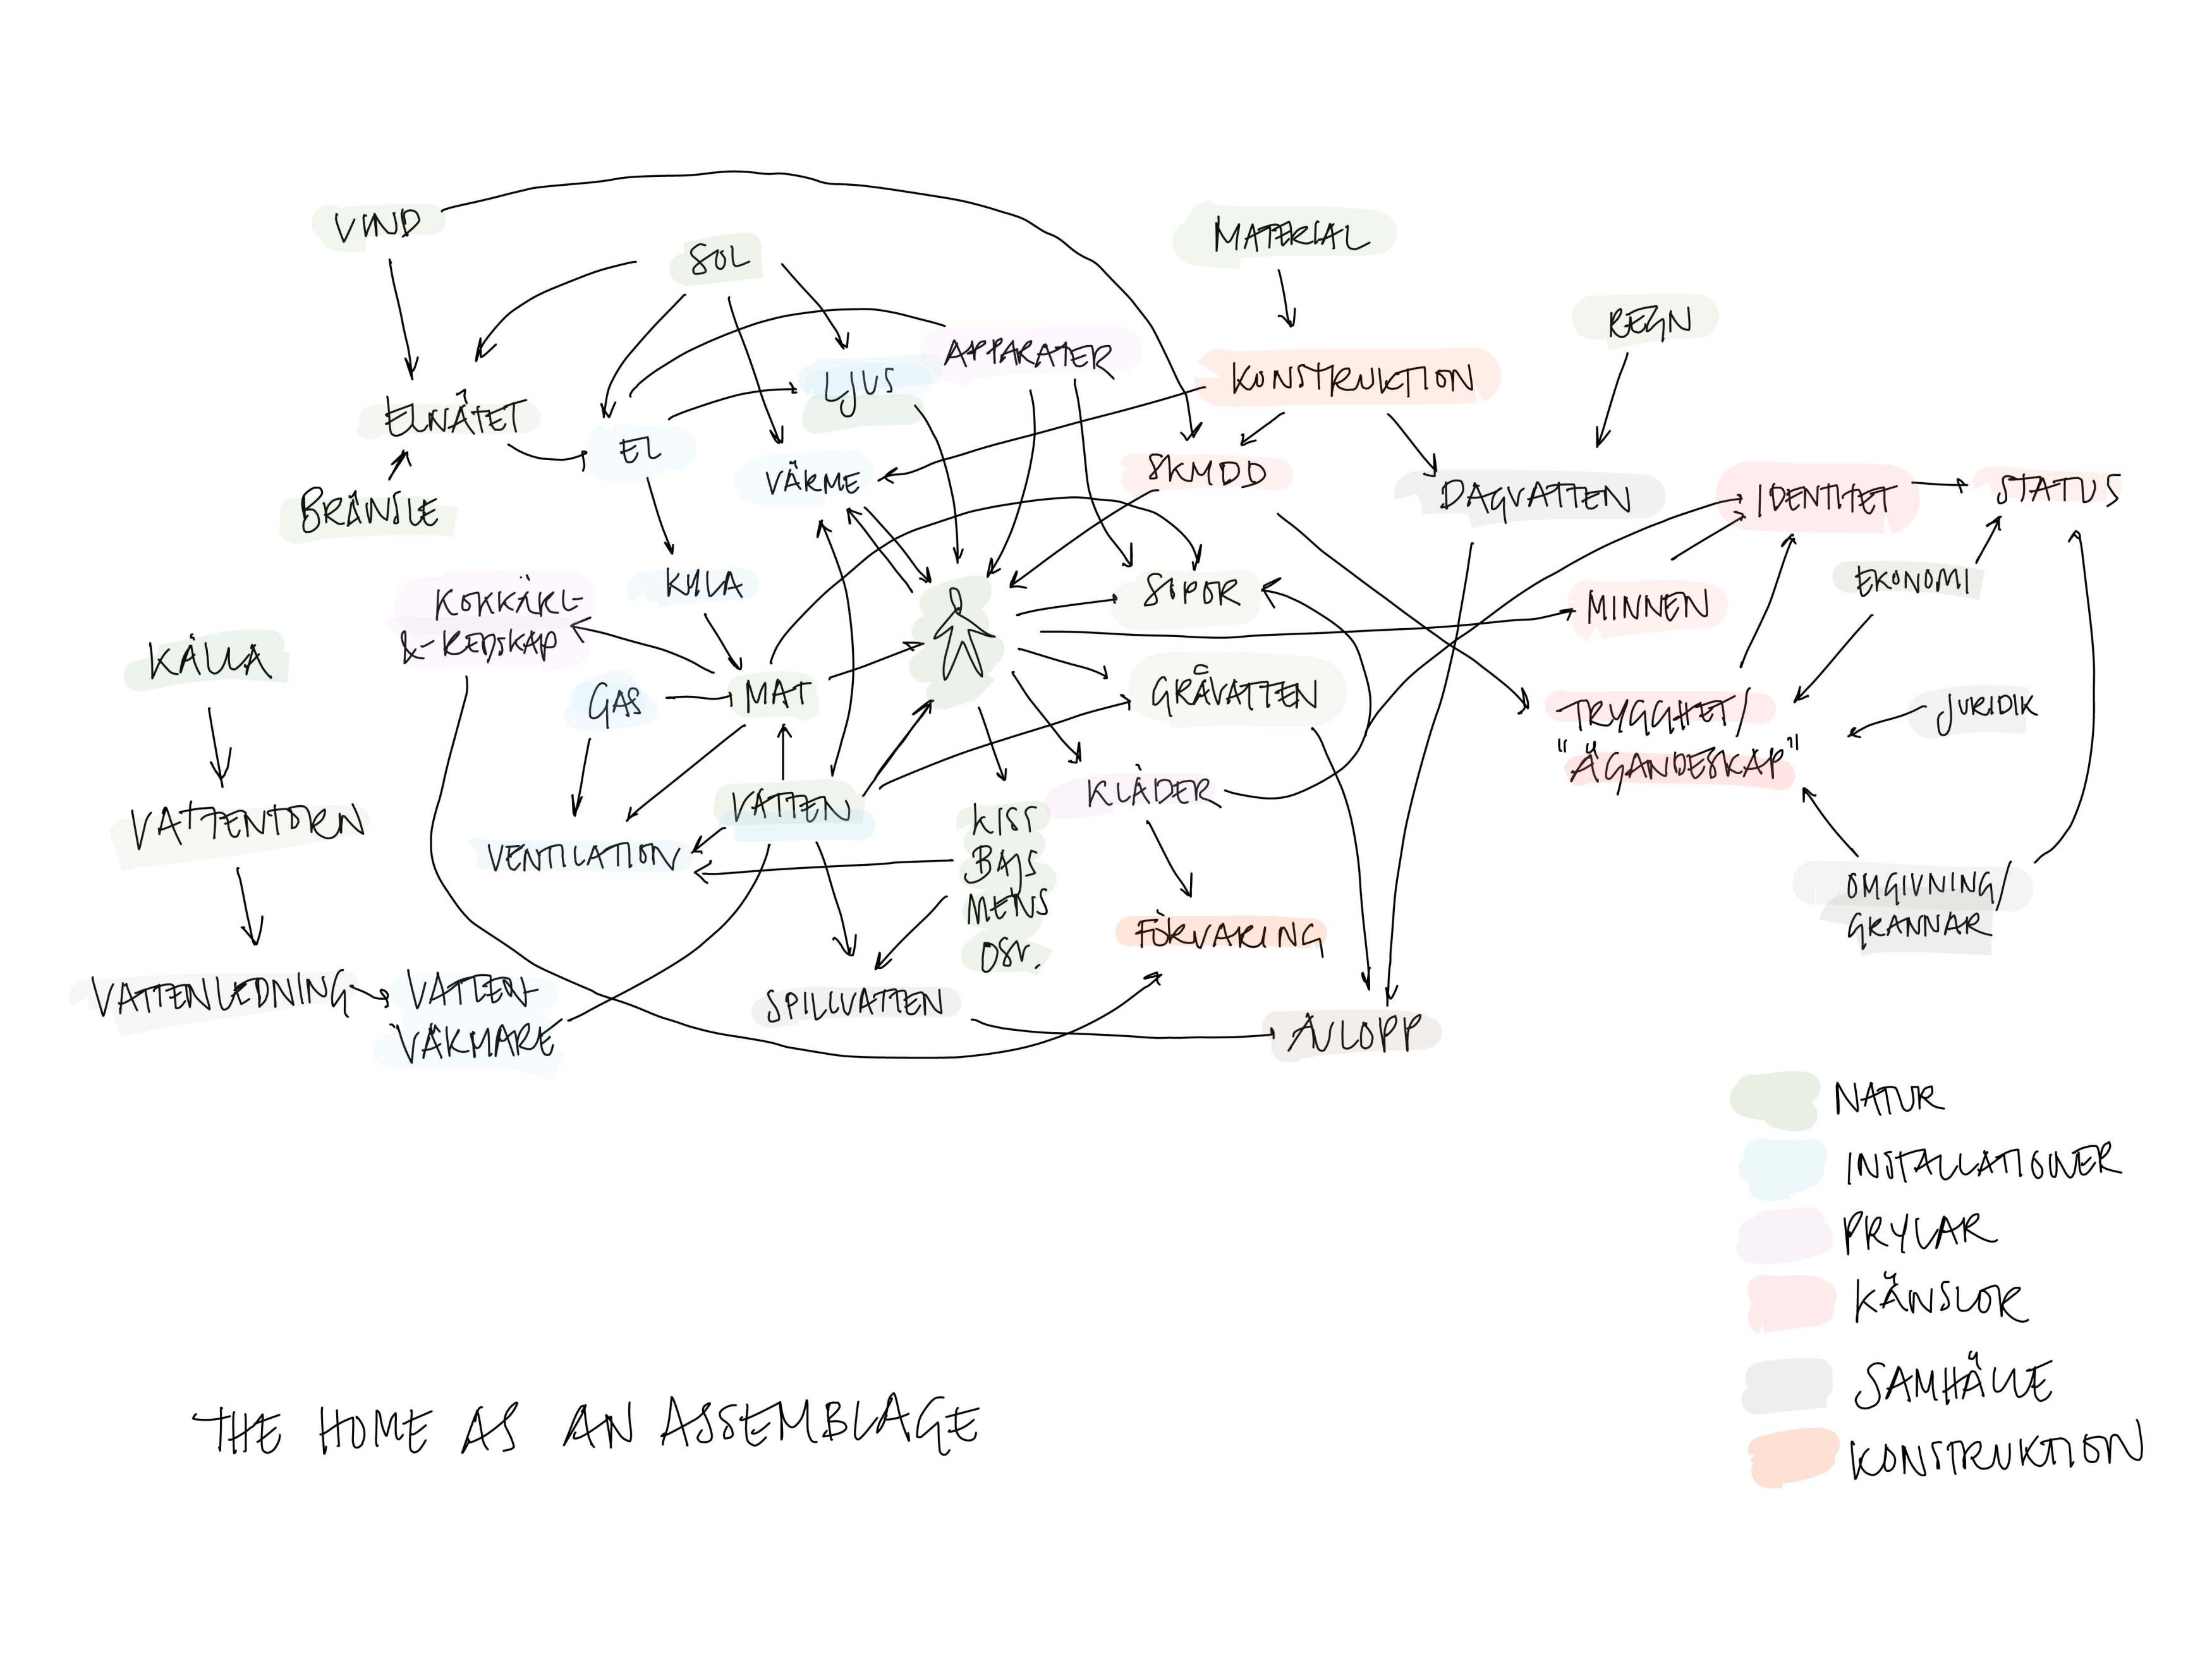 VIND
SOL
MATERIAL
REGN
APPARATER
LJUS
KONSTRUKTION
ELNÄTET
EL
VÄRME
SKYDD
DAGVATTEN
IDENTITET
STATUS
BRÄNSLE
KYLA
SOPOR
EKONOMI
MINNEN
KOKKÄRL-
&-REDSKAP
KÄLLA
GAS
MAT
GRÅVATTEN
TRYGGHET/
"ÄGANDESKAP"
JURIDIK
VATTEN
KLÄDER
VATTENTORN
VENTILATION
KISS
BAJS
MENS
OSV.
FÖRVARING
OMGIVNING/
GRANNAR
VATTENLEDNING
VATTEN-
VÄRMARE
SPILLVATTEN
AVLOPP
NATUR
INSTALLATIONER
PRYLAR
KÄNSLOR
SAMHÄLLE
KONSTRUKTION
THE HOME AS AN ASSEMBLAGE